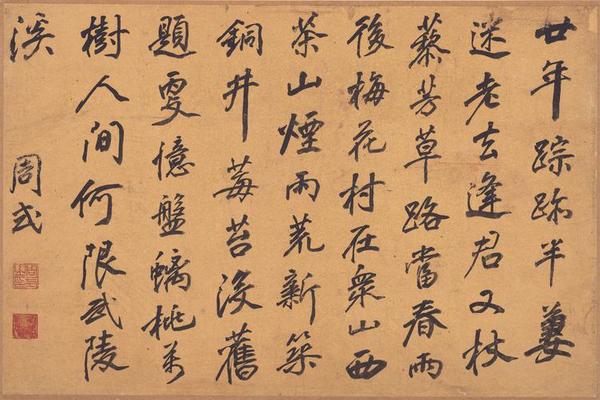 廿年踪跡半萋
迷老去逢君又杖
藜芳草路當春雨
後梅花村在衆山西
茶山煙雨荒新築
銅井莓苔沒舊
題更憶盤螭桃萬
樹人間何限武陵
溪
周式